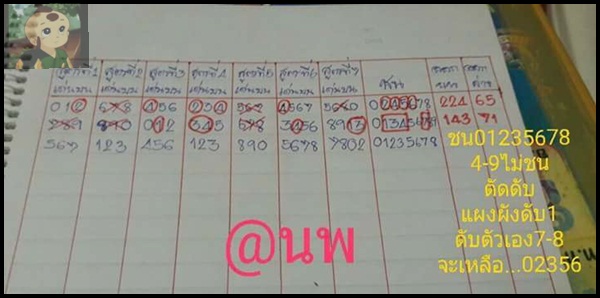 สูตรที่1 สูตรที่2 สูตรที่3 สูตรที่4 สูตรที่5 สูตรที่6 สูตรที่7
เด่นบน เด่นบน เด่นบน เด่นบน เด่นบน เด่นบน เด่นบน ชน
012 678 456 234 562 4567 5640 01245678 224 65
789 890 012 345 678 3456 8913 013456789 143 71
567 123 456 123 890 5678 7802 01235678
ชน01235678
4-9ไม่ชน
ตัดดับ
แผงผังดับ1
ดับตัวเอง7-8
จะเหลือ...02356
@นพ